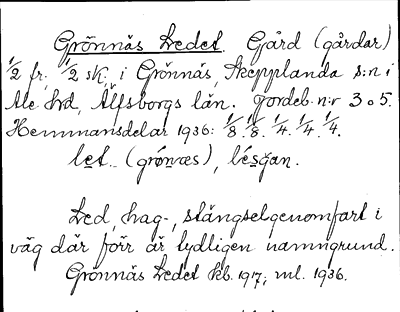 Grönnäs Ledet. Gård (gårdar)
1/2 fr., 1/2 sk., i Grönnäs, Skepplanda s:n i
Ale hd, Älfsborgs län. Jordeb. n:r 3 o 5.
Hemmansdelar 1936: 1/8. 1/8. 1/4. 1/4. 1/4.
let.. (grónæs),
Led, hag-, stängselgenomfart i
väg där förr är tydligen namngrund.
Grönnäs Ledet kb. 1917; ml. 1936.